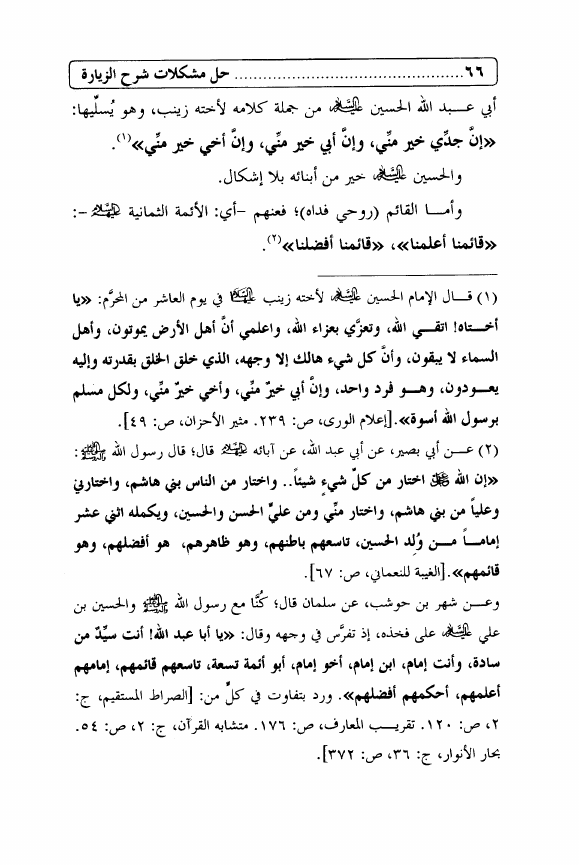 ٦٦ ................................................ حل مشكلات شرح الزيارة
أبي عــبد الله الحسين عليه السلام من جملة كلامه لأخته زينب، وهو يُسلّيها:
«إنَّ جدِّي خير منِّي، وإنَّ أبي خير منِّي، وإنَّ أخي خير منِّي»(١).
والحسين عليه السلام خير من أبنائه بلا إشكال.
وأمــا القائم (روحي فداه)؛ فعنهم -أي: الأئمة الثمانية عليهم السلام-:
«قائمنا أعلمنا»، «قائمنا أفضلنا»(٢).
(١) قــال الإمام الحسين عليه السلام لأخته زينب عليها السلام في يوم العاشر من المحرَّم: «يا
أخــتاه! اتقــي الله، وتعزَّي بعزاء الله، واعلمي أنَّ أهل الأرض يموتون، وأهل
السماء لا يبقون، وأنَّ كل شيء هالك إلا وجهه، الذي خلق الخلق بقدرته وإليه
يعــودون، وهــو فرد واحد، وإنَّ أبي خيرٌ منِّي، وأخي خيرٌ منِّي، ولكل مسلم
برسول الله أسوة».[إعلام الورى، ص: ٢٣٩. مثير الأحزان، ص: ٤٩].
(٢) عــن أبي بصير، عن أبي عبد الله، عن آبائه عليهم السلام قال؛ قال رسول الله ﷺ:
«إن الله عز وجل اختار من كلّ شيءٍ شيئاً.. واختار من الناس بني هاشم، واختارني
وعلياً من بني هاشم، واختار منِّي ومن عليٍّ الحسن والحسين، ويكمله اثني عشر
إمامــاً مــن وُلِد الحسين، تاسعهم باطنهم، وهو ظاهرهم، هو أفضلهم، وهو
قائمهم».[الغيبة للنعماني، ص: ٦٧].
وعــن شهر بن حوشب، عن سلمان قال؛ كُنَّا مع رسول الله ﷺ والحسين بن
علي عليه السلام على فخذه، إذ تفرَّس في وجهه وقال: «يا أبا عبد الله! أنت سيِّدٌ من
سادة، وأنت إمام، ابن إمام، أخو إمام، أبو أئمة تسعة، تاسعهم قائمهم، إمامهم
أعلمهم، أحكمهم أفضلهم». ورد بتفاوت في كلٍّ من: [الصراط المستقيم، ج:
٢، ص: ١٢٠. تقريــب المعارف، ص: ١٧٦. متشابه القرآن، ج: ٢، ص: ٥٤.
بحار الأنوار، ج: ٣٦، ص: ٣٧٢].